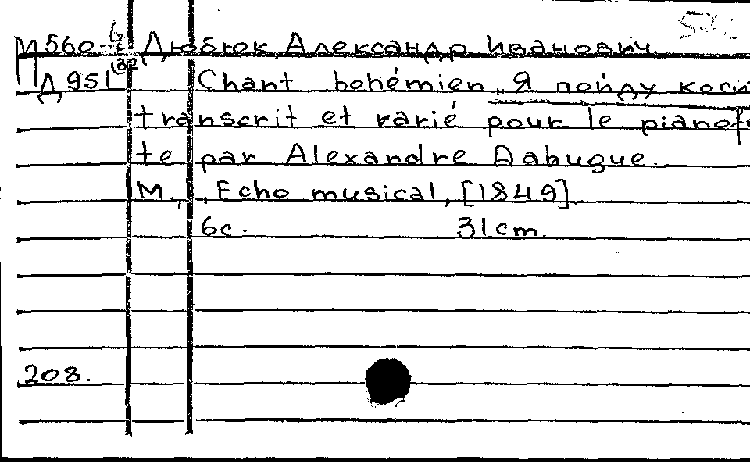 М560 Дюбюк Александр Иванович
Д951 Chant bohémien „Я пойду коси
transcrit et varié pour le pianof
te par Alexandre Dabuque.
М., Echo musical, [1849]
6с. 31cm.
208.